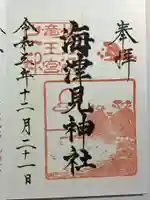 奉拝
海津見神社
竜王宮
令和三年十二月二十一日